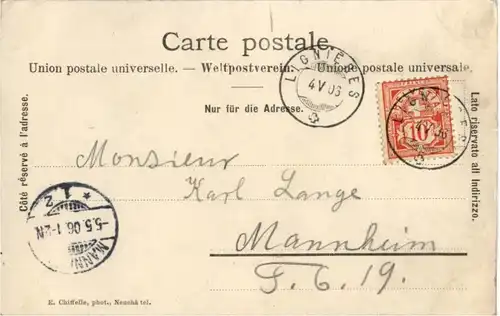 Carte postale.
Union postale universelle. — Weltpostverein. — Unione postale universale.
Nur für die Adresse.
Côté réservé à l'adresse.
Lato riservato all' Indirizzo.
LIGNIÈRES
4 V 06
10
Monsieur
Karl Lange
Mannheim
F. 6. 19.
MANN
5.5.06. 1-2N
* 1 z
E. Chiffelle, phot., Neuchâtel.